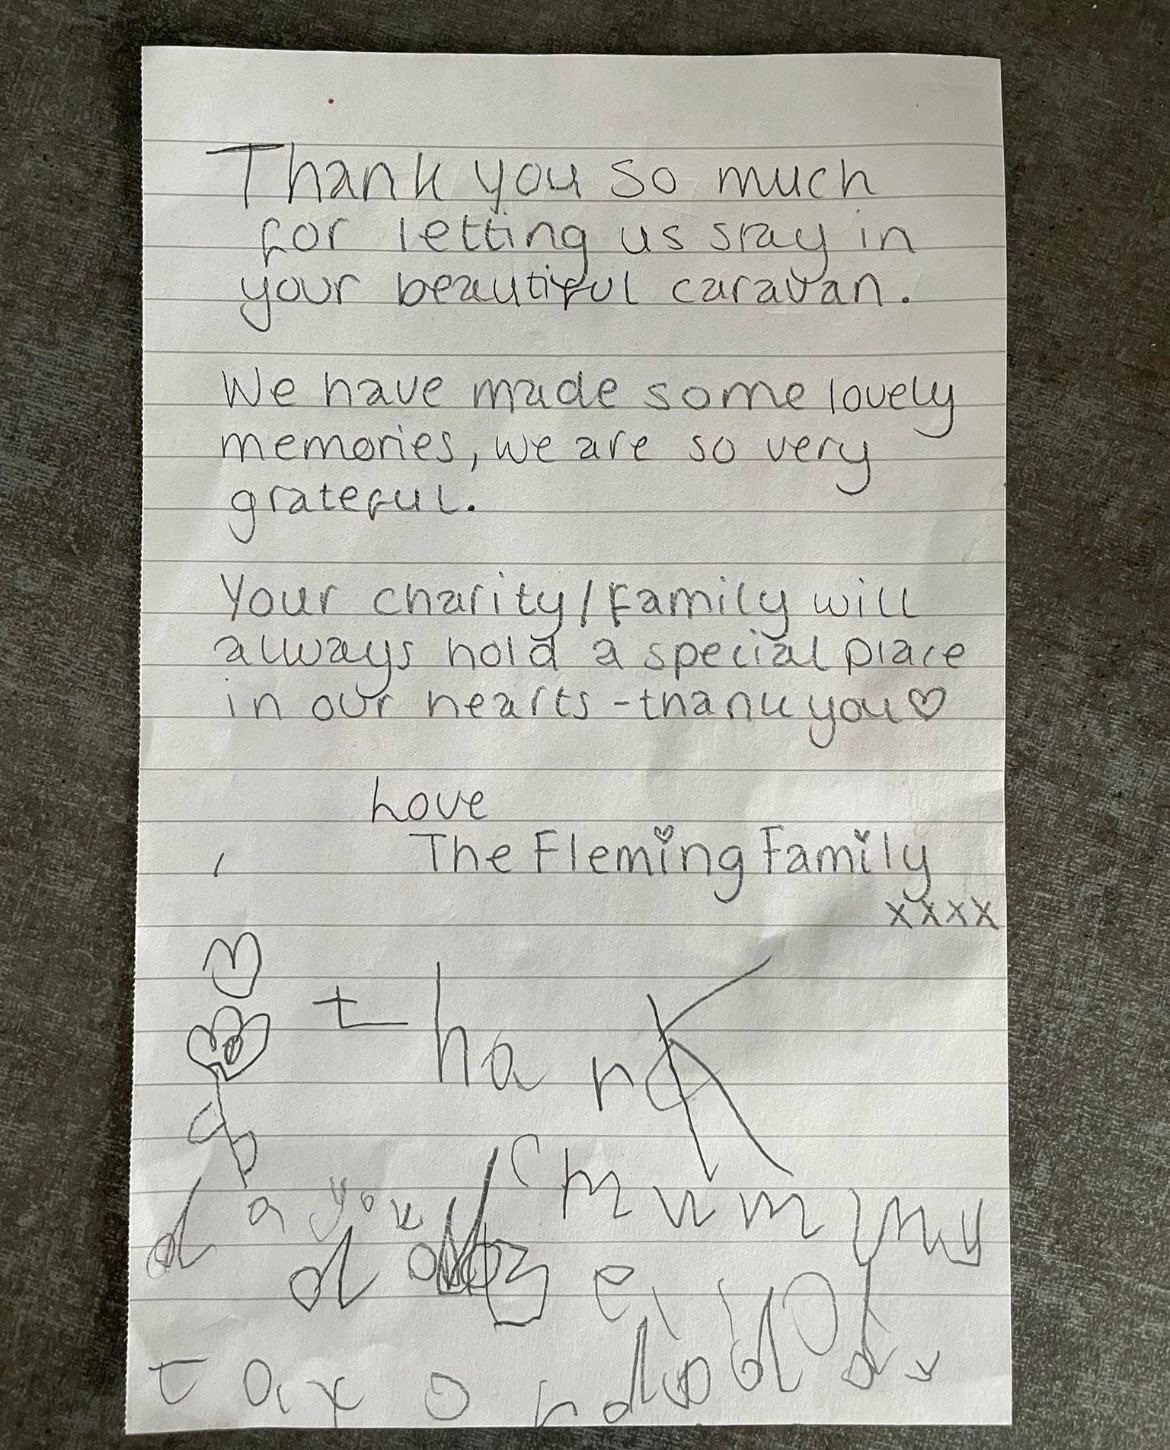 Thank you so much
for letting us stay in
your beautiful caravan.
We have made some lovely
memories, we are so very
grateful.
Your charity/family will
always hold a special place
in our hearts - thank you♡
Love
The Fleming Family
xxxx
thank
you
mummy